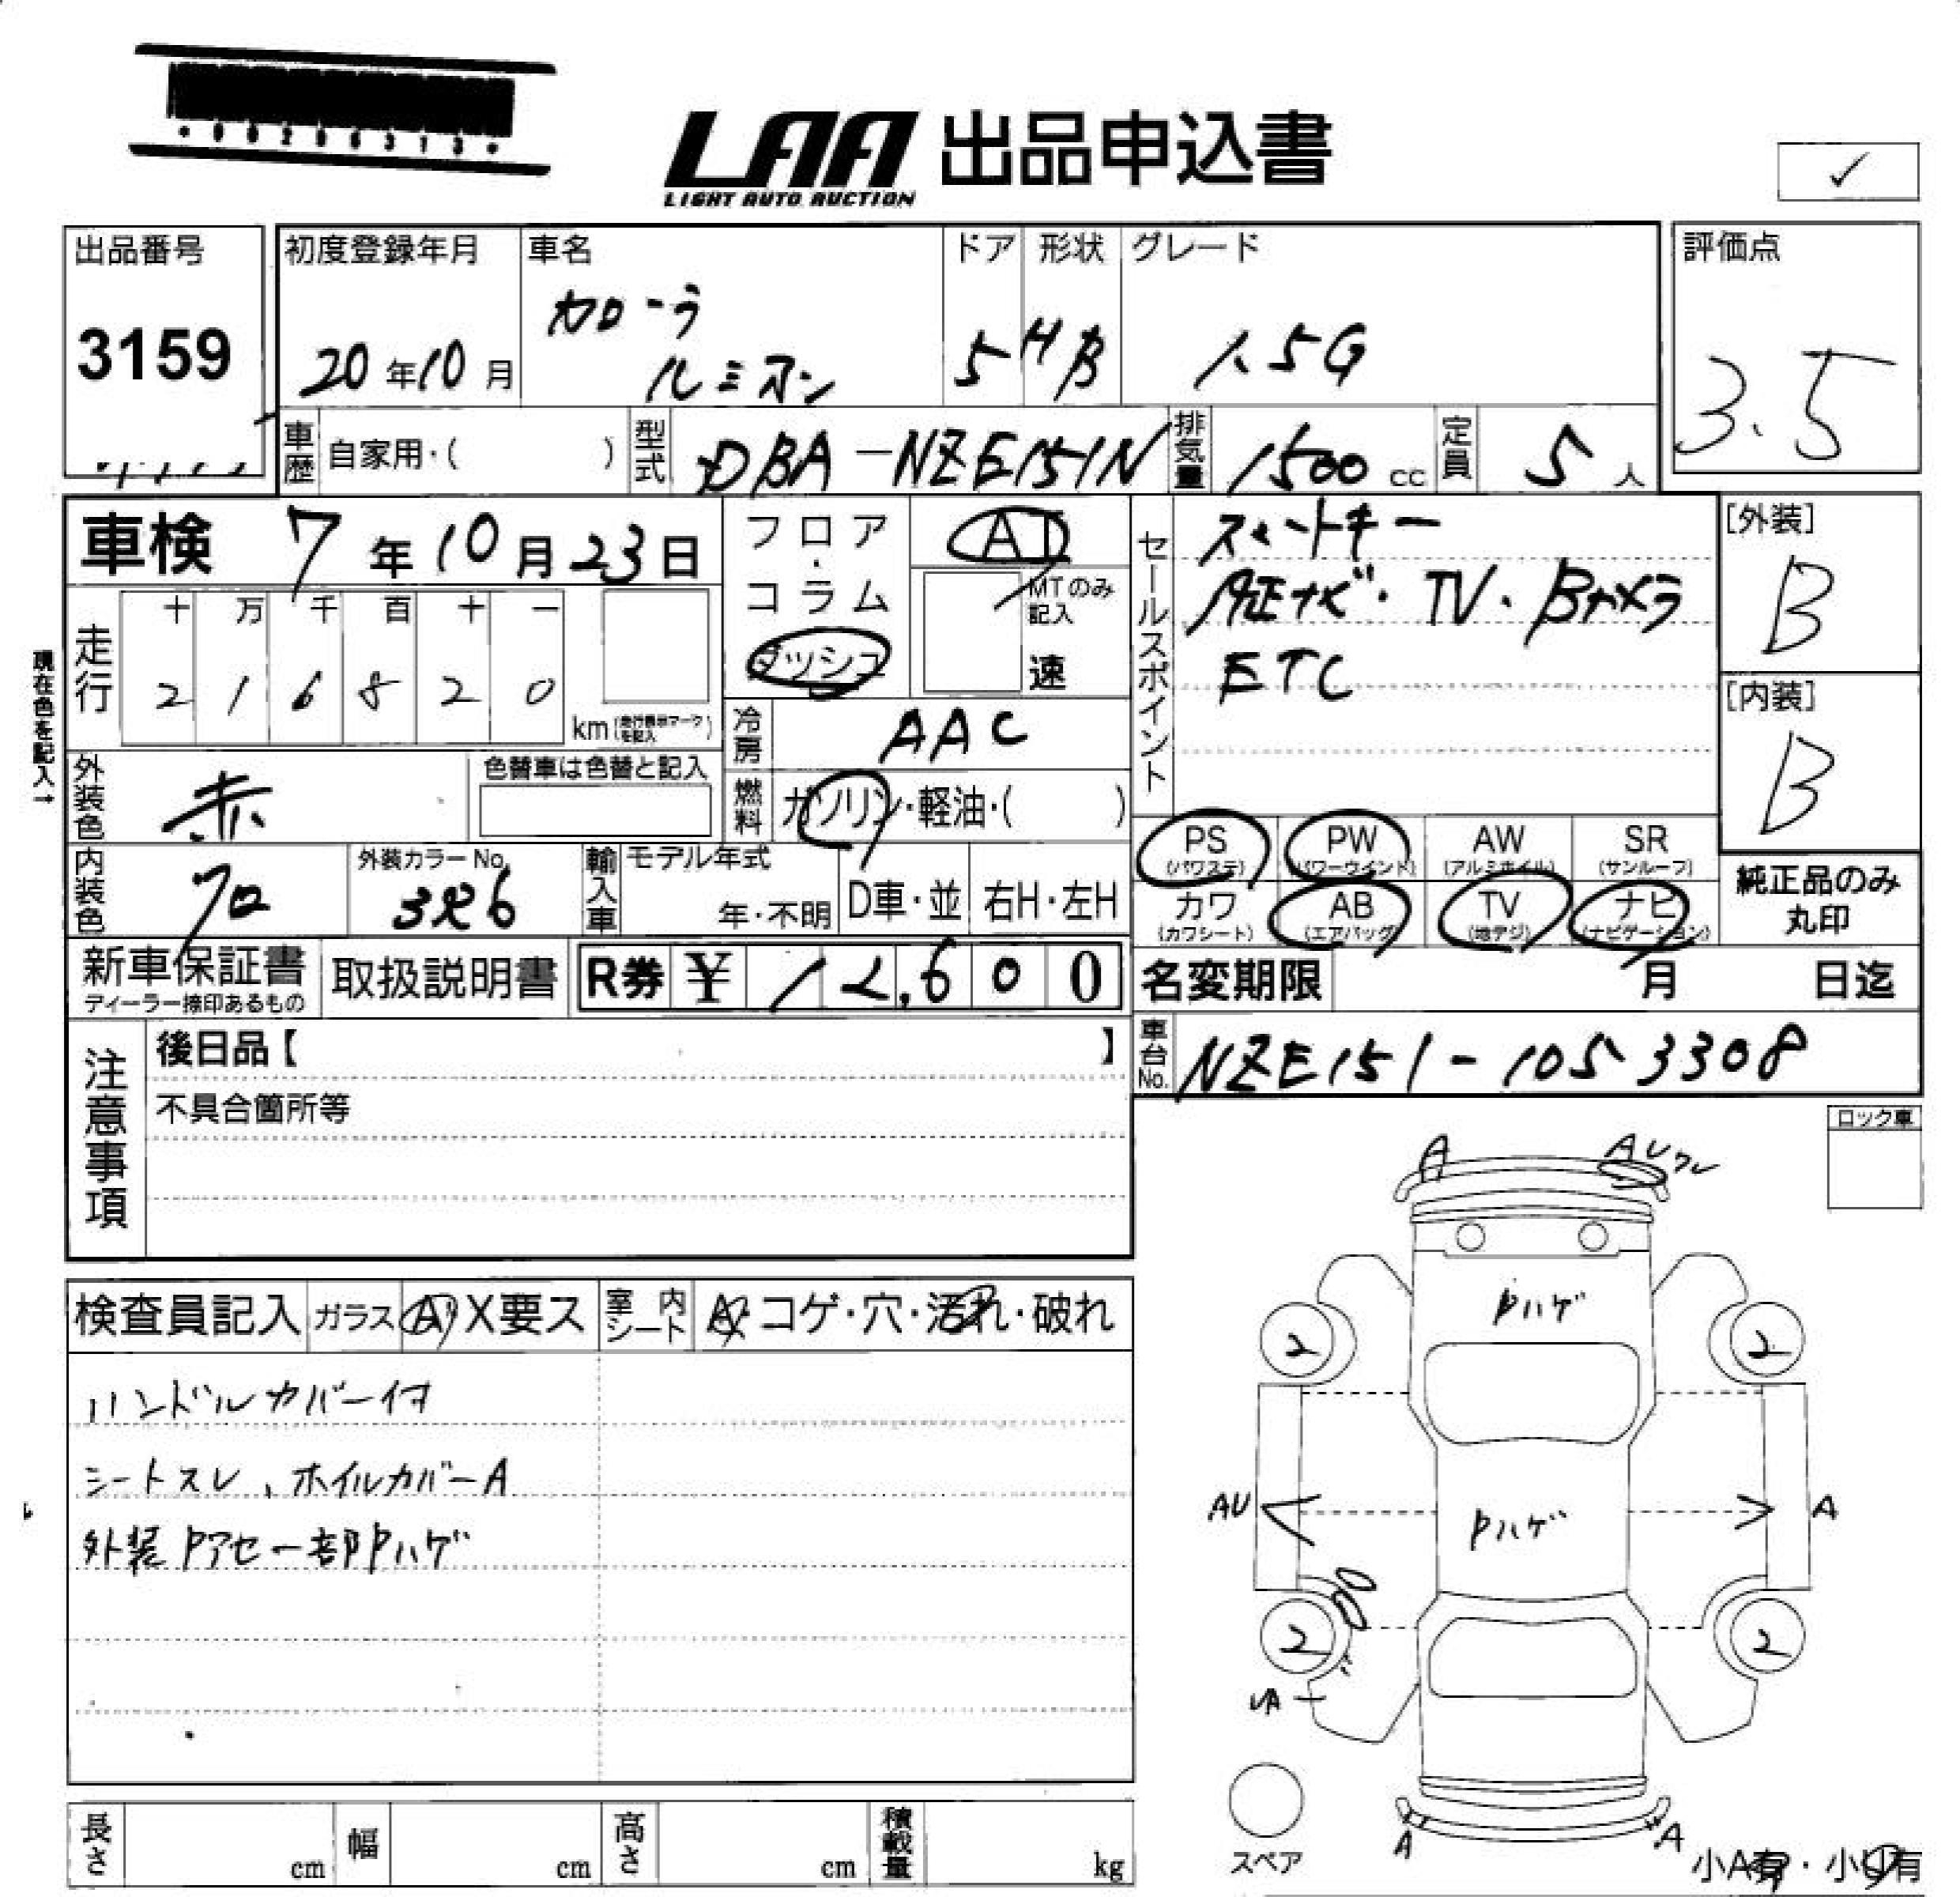 LAA 出品申込書
LIGHT AUTO AUCTION
✓
出品番号
3159
初度登録年月
20年10月
車名
カローラ
ルミオン
ドア
5
形状
HB
グレード
1.5G
評価点
3.5
車歴 自家用・( )
型式 DBA-NZE151N
排気量 1500 cc
定員 5 人
車検 7年10月23日
走行
十 万 千 百 十 一
2 1 6 8 2 0
km (走行表示マークを記入)
現在色を記入→
フロア・コラム
ダッシュ
AT
MTのみ記入
速
冷房 AAC
燃料 ガソリン・軽油・( )
セールスポイント
スマートキー
純正ナビ・TV・Bカメラ
ETC
[外装]
B
[内装]
B
外装色 赤
色替車は色替と記入
内装色 クロ
外装カラーNo.
3R6
輸入車
モデル年式
年・不明
D車・並
右H・左H
PS (パワステ)
PW (パワーウインド)
AW (アルミホイル)
SR (サンルーフ)
カワ (カワシート)
AB (エアバッグ)
TV (地デジ)
ナビ (ナビゲーション)
純正品のみ
丸印
新車保証書
ディーラー捺印あるもの
取扱説明書
R券 ¥ 12,600
名変期限 月 日迄
注意事項
後日品【 】
不具合箇所等
車台No. NZE151-1053308
ロック車
検査員記入 ガラス A・X要ス
室内シート A・コゲ・穴・汚れ・破れ
ハンドルカバー付
シートスレ、ホイルカバーA
外装Pアセ一部Pハゲ
A
AUワレ
Pハゲ
2
2
AU
Pハゲ
A
2
2
UA
A
A
スペア
小A有・小U有
長さ cm
幅 cm
高さ cm
積載量 kg